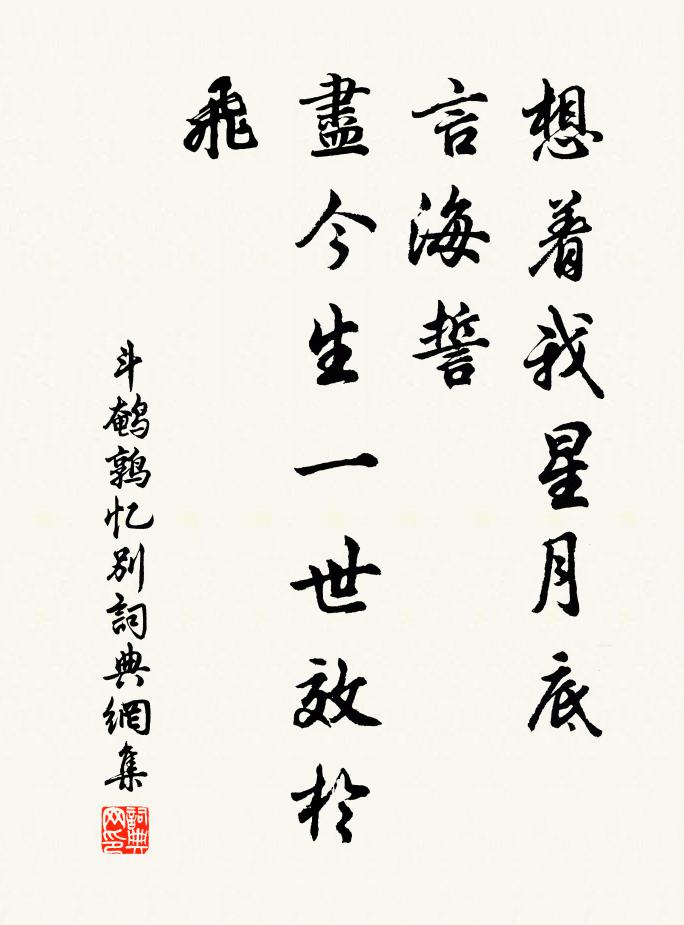 想着我星月底
言海誓
盡今生一世效於
飛
斗鹌鹑忆别詞典網集
詞典
网印